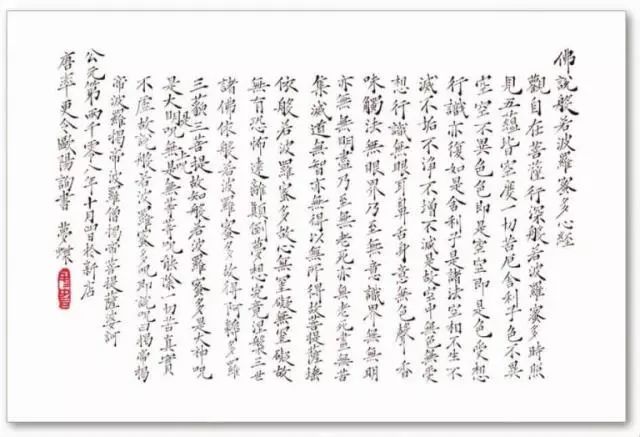 佛說般若波羅蜜多心經
觀自在菩薩行深般若波羅蜜多時照
見五蘊皆空度一切苦厄舍利子色不異
空空不異色色即是空空即是色受想
行識亦復如是舍利子是諸法空相不生不
滅不垢不淨不增不減是故空中無色無受
想行識無眼耳鼻舌身意無色聲香
味觸法無眼界乃至無意識界無無明
亦無無明盡乃至無老死亦無老死盡無苦
集滅道無智亦無得以無所得故菩提薩埵
依般若波羅蜜多故心無罣礙無罣礙故
無有恐怖遠離顛倒夢想究竟涅槃三世
諸佛依般若波羅蜜多故得阿耨多羅
三藐三菩提故知般若波羅蜜多是大神呪
是大明呪是無上呪是無等等呪能除一切苦真實
不虛故說般若波羅蜜多呪即說呪曰揭帝揭
帝波羅揭帝波羅僧揭帝菩提薩婆訶
公元第兩千零八年十月四日於新店
唐率更令歐陽詢書 夢蝶